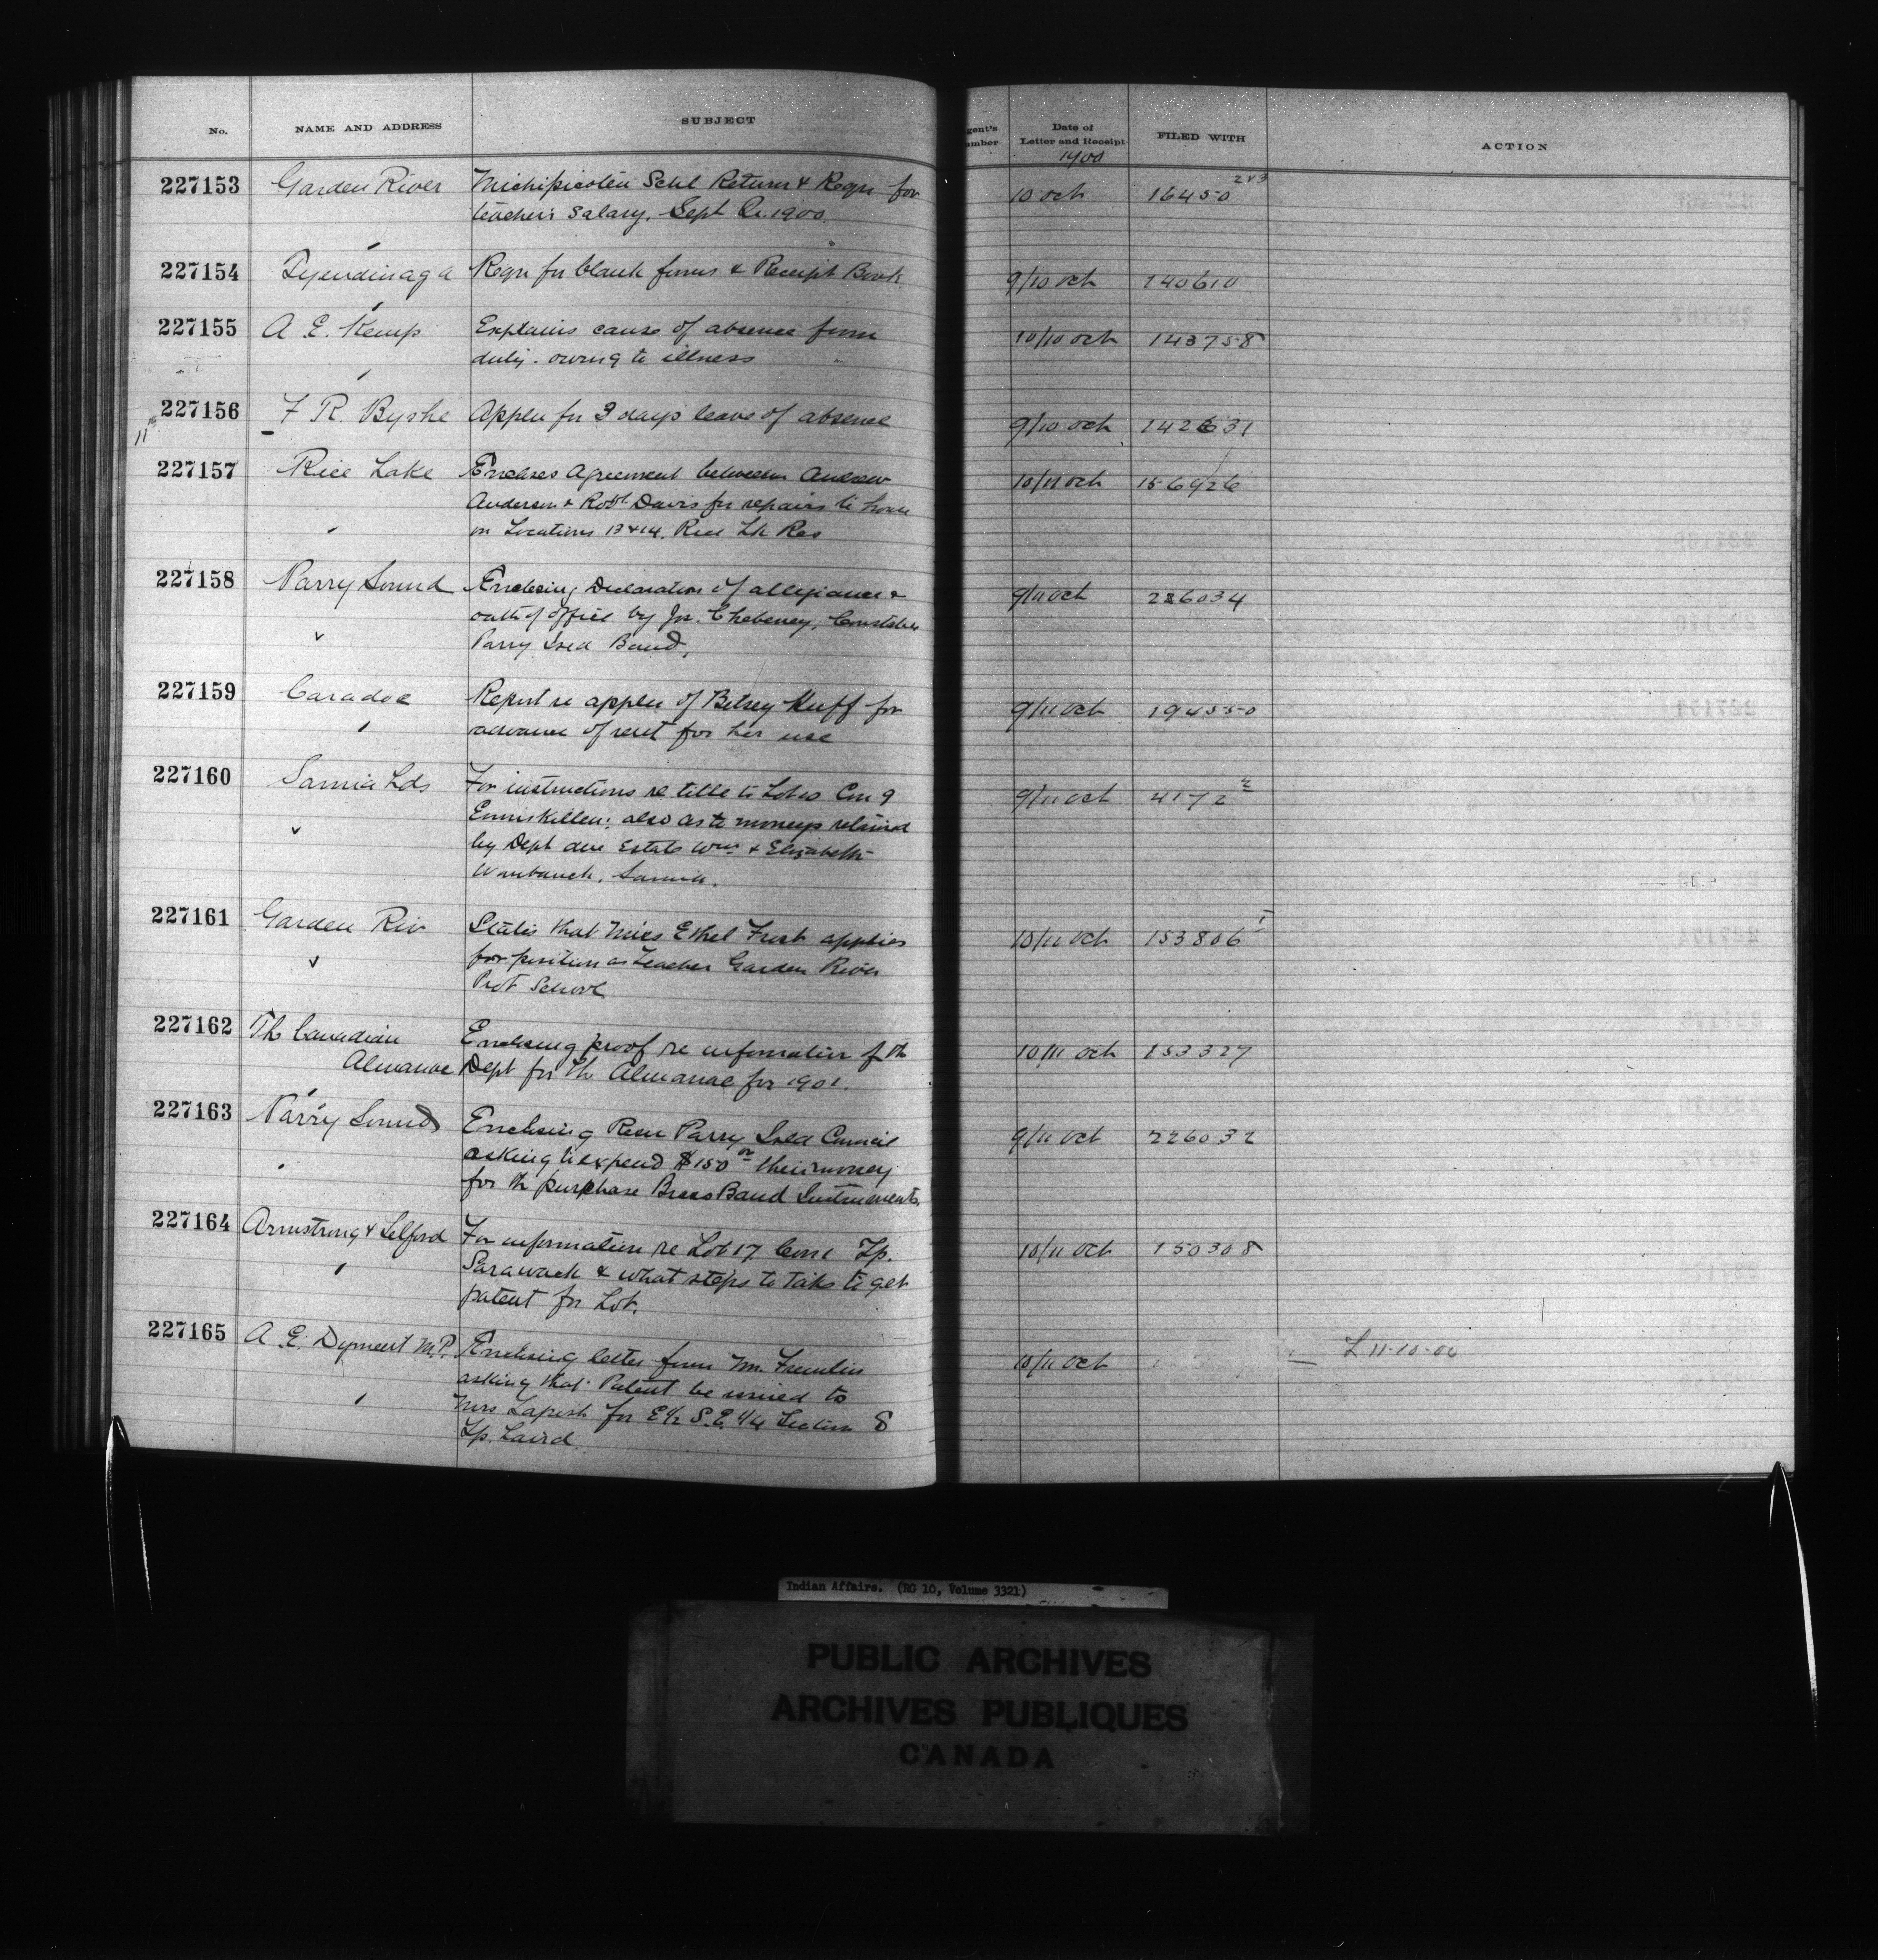 No. NAME AND ADDRESS SUBJECT
Date of Letter and Receipt FILED WITH ACTION
1900
227153 Garden River Michipicoten Schl Returns & Reqn for
teacher's Salary. Sept Qr. 1900.
10 Oct 16450 2 v 3
227154 Tyendinaga Reqn for blank forms & Receipt Book
9/10 Oct 140610
227155 A. E. Kemp Explains cause of absence from
duty. owing to illness
10/10 Oct 143758
227156 F R. Byshe Appln for 3 days leave of absence
11th
9/10 Oct 142631
227157 Rice Lake Encloses Agreement between Andrew
Anderson & Robt Davis for repairs to house
on Locations 13 & 14. Rice Lk Res
10/11 Oct 156926
227158 Parry Sound Enclosing Declaration of allegiance &
oath of office by Jos. Chebeney, Constable
Parry Isld Band,
9/11 Oct 226034
227159 Caradoc Report re appln of Betsey Huff for
advance of rent for her use
9/11 Oct 194550
227160 Sarnia Lds For instructions re title to Con 9
Enniskillen: also as to moneys retained
by Dept due Estate Wm & Elizabeth
Sarnia.
9/11 Oct 4172
227161 Garden Riv States that Miss Ethel Frost applies
for position as Teacher Garden River
Prot School
10/11 Oct 153806
227162 Th Canadian
Almanac Enclosing proof re information f th
Dept for th Almanac for 1901.
10/11 Oct 153327
227163 Parry Sound Enclosing Resn Parry Isld Council
asking to expend $150 00 their money
for th purchase Brass Band Instruments.
9/11 Oct 226032
227164 Armstrong & Telford For information re Lot 17 Con 1 Tp.
Sarawack & what steps to take to get
patent for Lot.
10/11 Oct 150308
227165 A. E. Dyment M.P. Enclosing letter from Mr. Fremlin
asking that Patent be issued to
Mrs Lapish for E½ S.E. ¼ Section 8
Tp. Laird
10/11 Oct L 11-10-00
Indian Affairs. (RG 10, Volume 3321)
PUBLIC ARCHIVES
ARCHIVES PUBLIQUES
CANADA